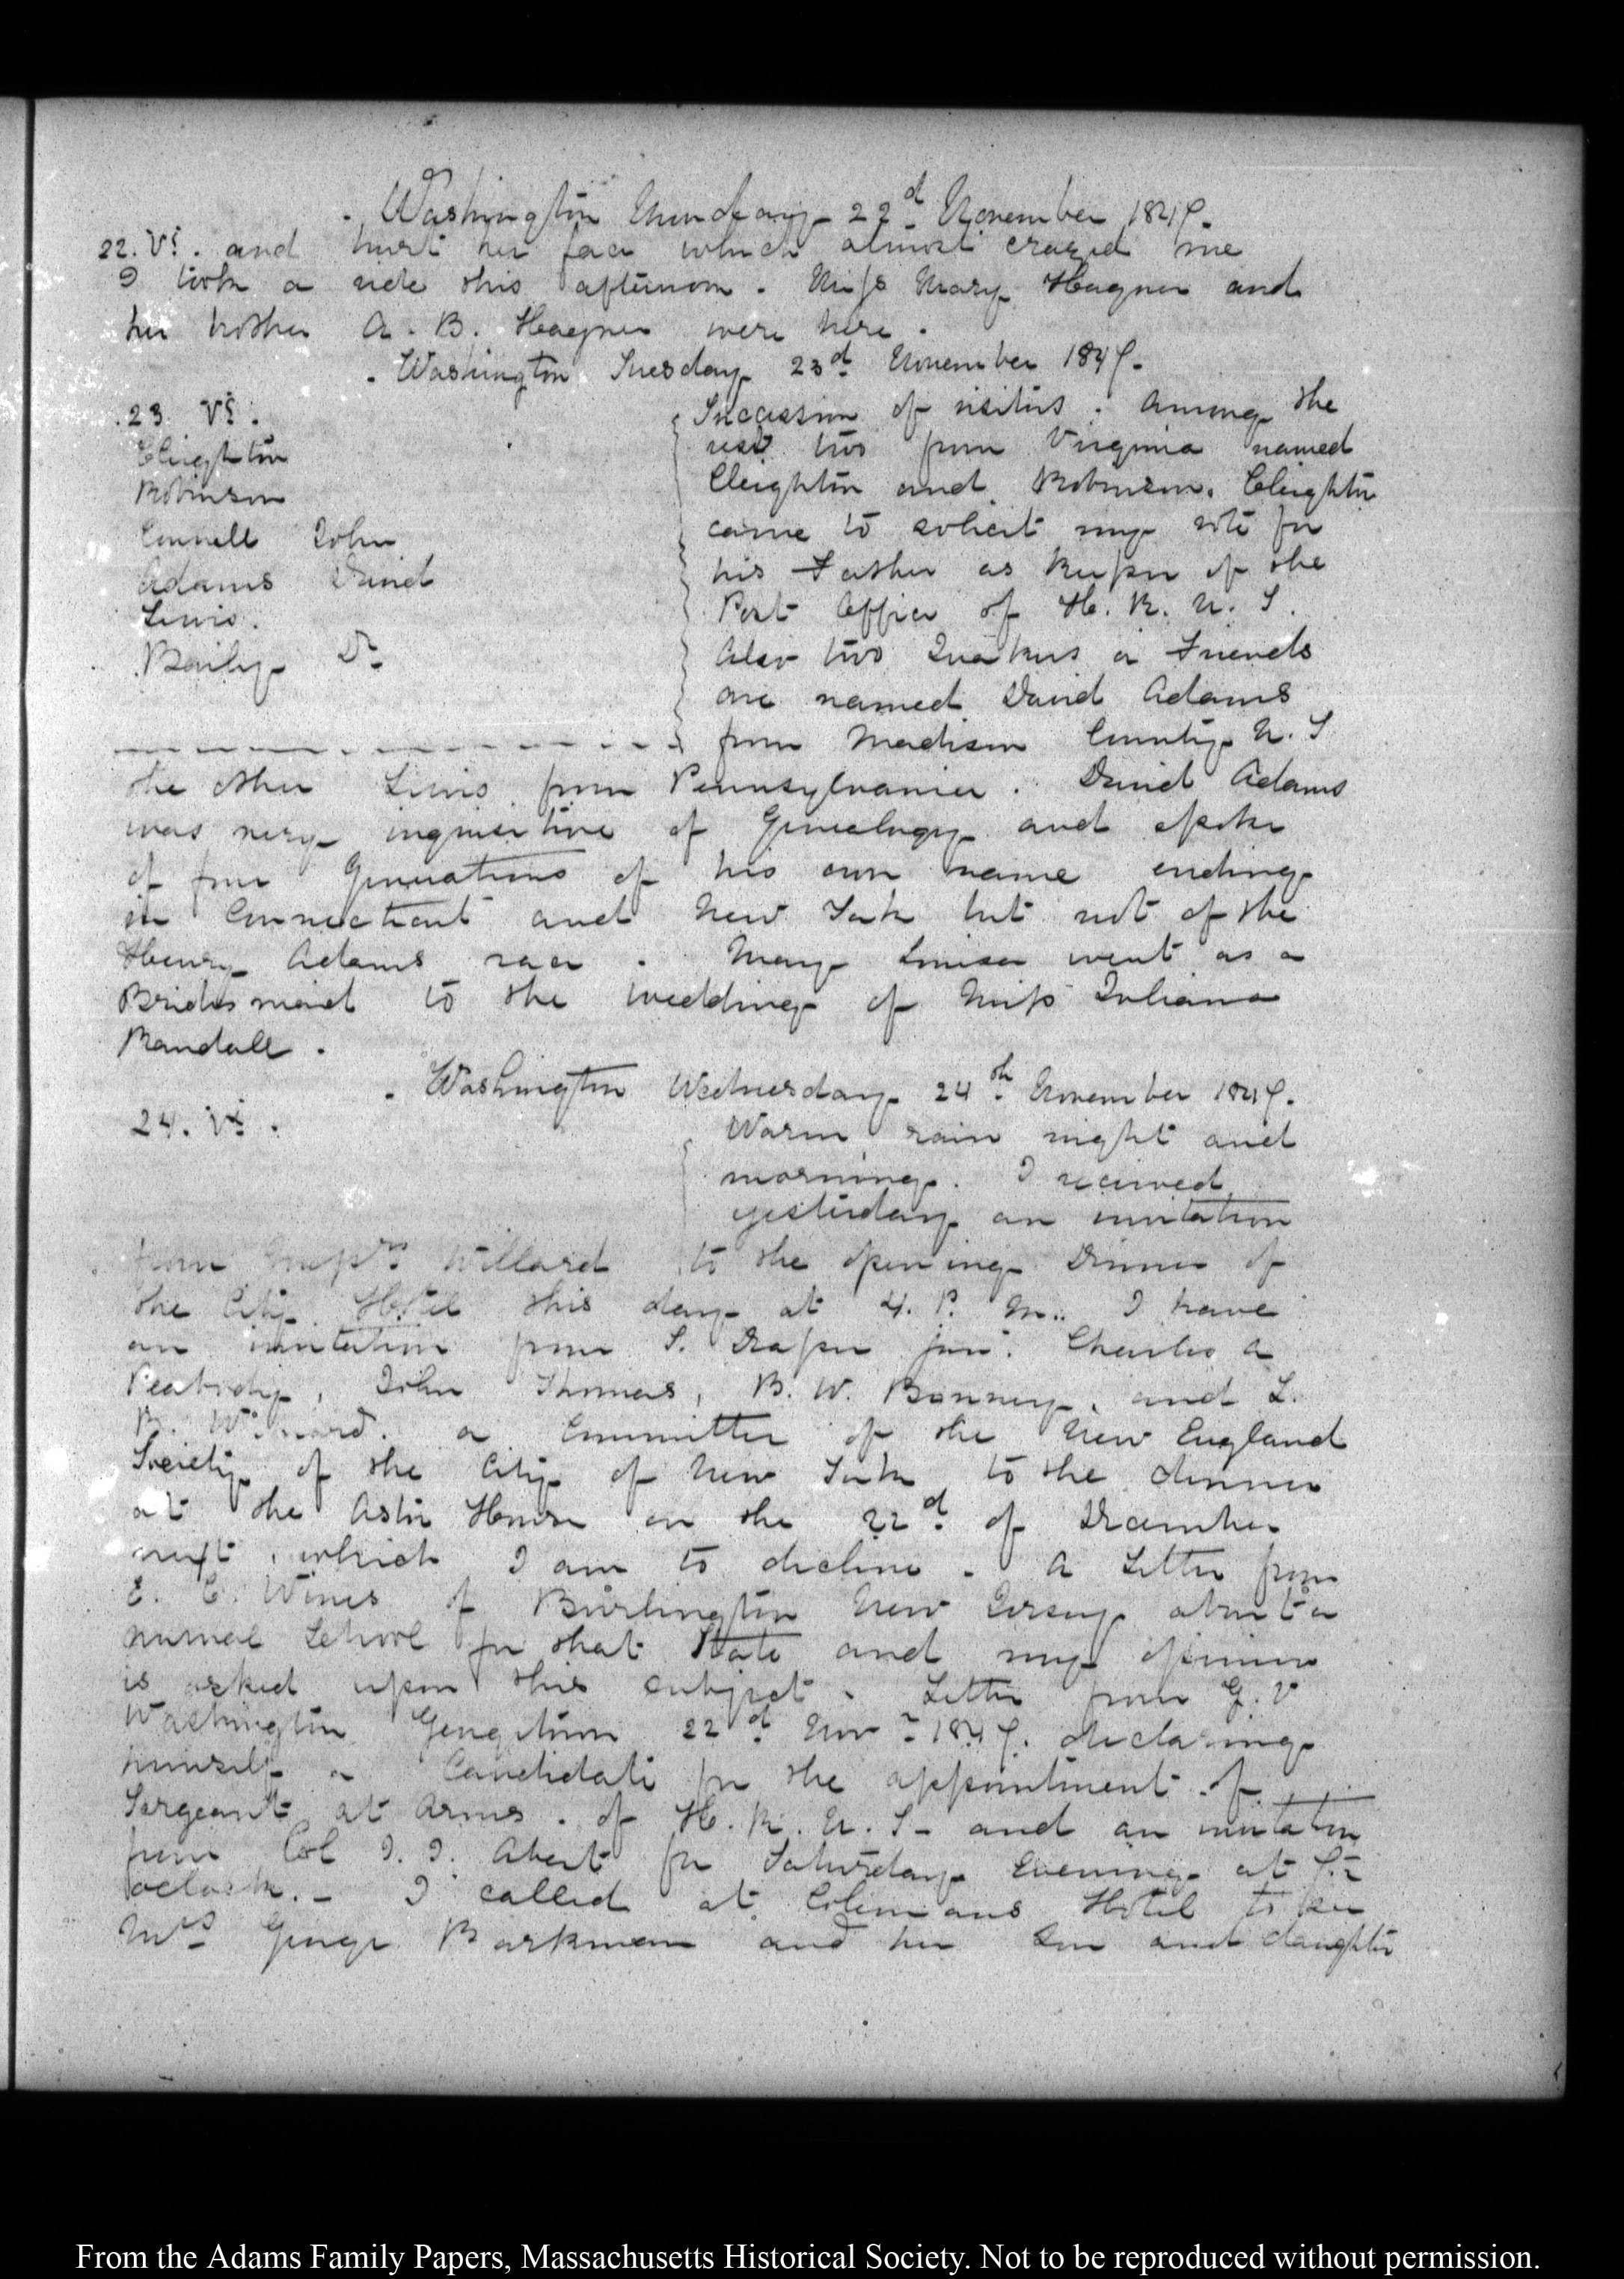 . Washington Munday 22d. November 1847.
22. VI. and hurt her face which almost crazed me
I took a ride this afternoon. Miss Mary Hagner and
her brother A. B. Hagner were here.
. Washington Tuesday 23d. November 1847.
23. VI.
Cleighton
Robinson
Connell John
Adams David
Lewis.
Baily Dr.
Succession of visitors. Among the
rest two from Virginia named
Cleighton and Robinson. Cleighton
came to solicit my vote for
his Father as keeper of the
Post Office of H. R. U. S.
Also two Quakers or Friends
one named David Adams
from Madison County N. Y
the other Lewis from Pennsylvania. David Adams
was very inquisitive of Genealogy and spoke
of four Generations of his own name ending
in Connecticut and New York but not of the
Henry Adams race. Mary Louisa went as a
Bridesmaid to the wedding of Miss Juliana
Randall.
. Washington Wednesday 24th. November 1847.
24. VI.
Warm rain night and
morning. I received
yesterday an invitation
from Messrs. Willard to the opening Dinner of
the City Hotel this day at 4. P. M.. I have
an invitation from S. Draper junr. Charles A
Peabody, John Thomas, B. W. Bonney, and L.
B. a Committee of the New England
Society of the City of New York to the dinner
at the Astor House on the 22d. of December
next, which I am to decline. A Letter from
E. C. Wines of Burlington New Jersey about a
normal School for that State and my opinion
is asked upon this subject. Letter from G. V
Washington Georgetown 22d. Novr. 1847. declaring
himself a Candidate for the appointment of
Sergeant at Arms. of H. R. U. S - and an invitation
from Col J. J. Abert for Saturday Evening at
oclock. - I called at Colemans Hotel to see
Mrs George Barkman and her Son and daughter
From the Adams Family Papers, Massachusetts Historical Society. Not to be reproduced without permission.